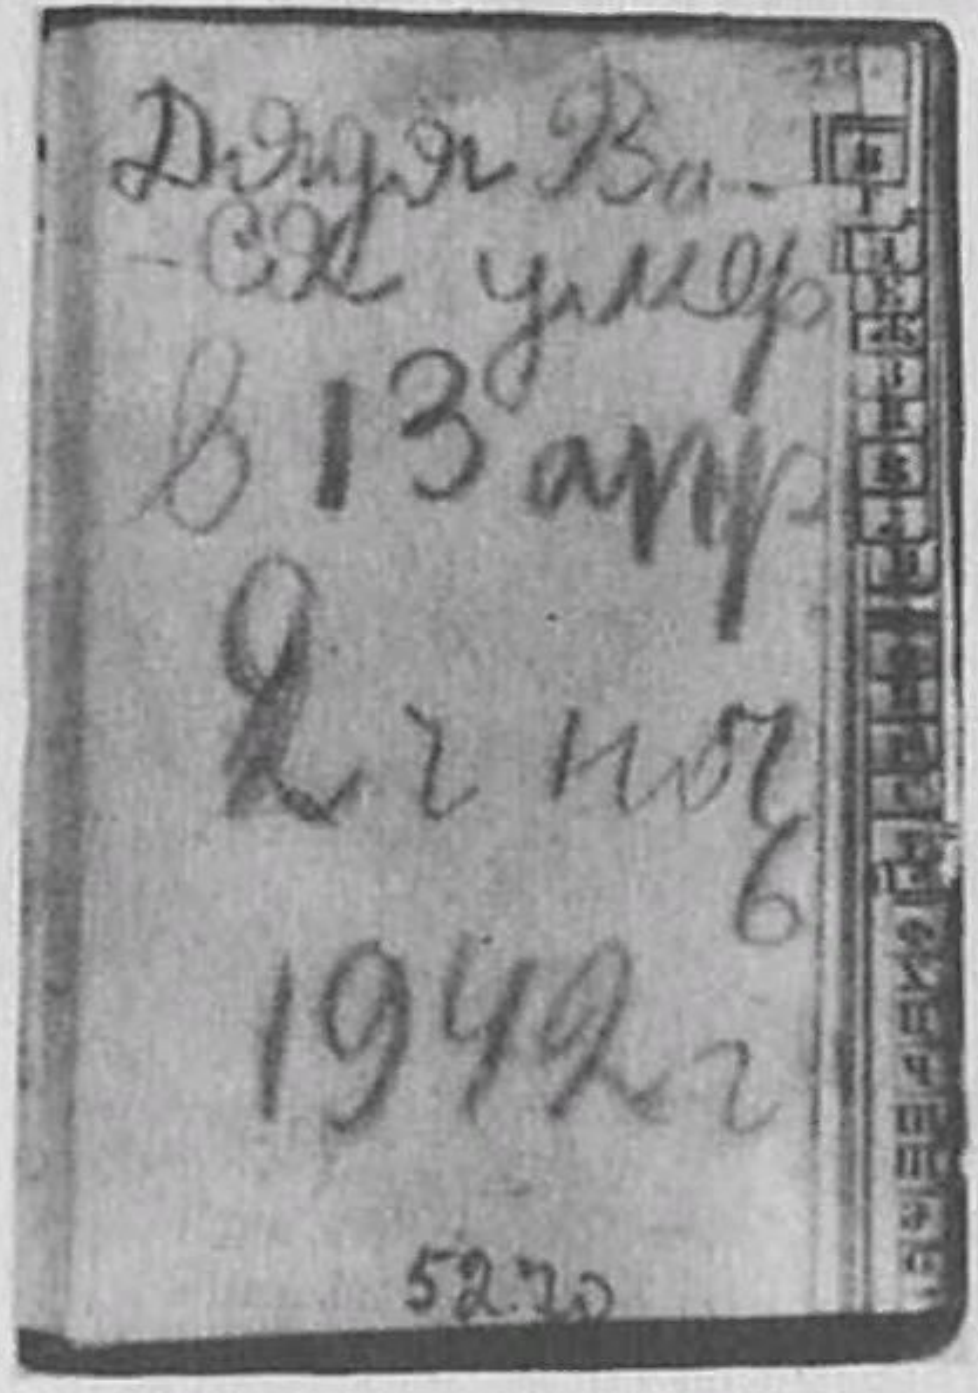 Дядя Ва-
-ся умер
в 13 апр
2 ч ноч
ь
1942 г
5270